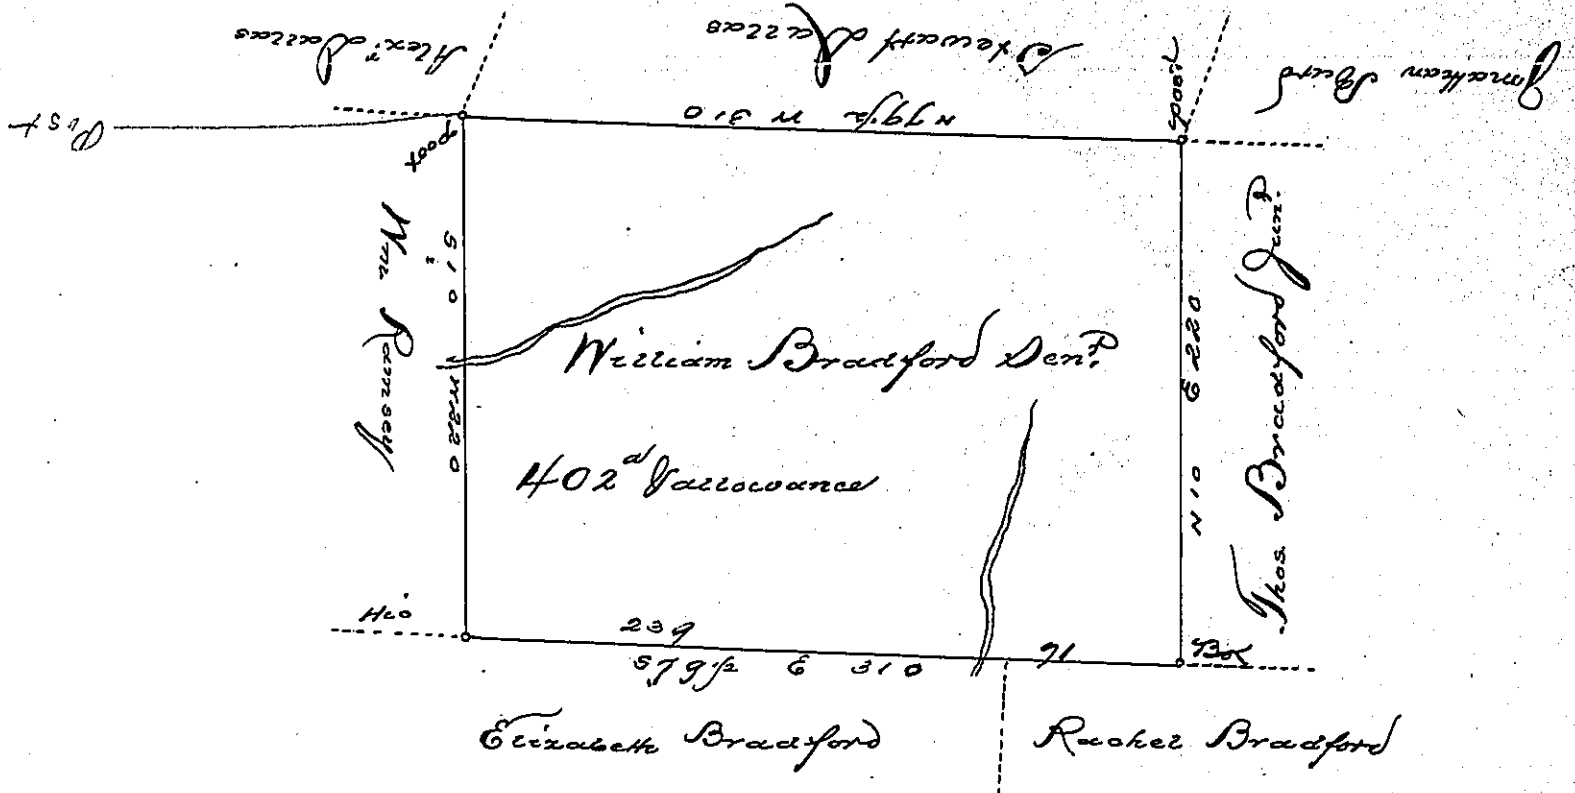 Alexr. Dallas
Stewart Dallas
Jonathan Burd
Post
post
post
N 79 1/2 W 310
Wm Ramsey
S 10 W 220
William Bradford Senr.
402 a & allowance
N 10 E 220
Thos. Bradford Junr.
Hic
239
91
S 79 1/2 E 310
Elizabeth Bradford
Rachel Bradford